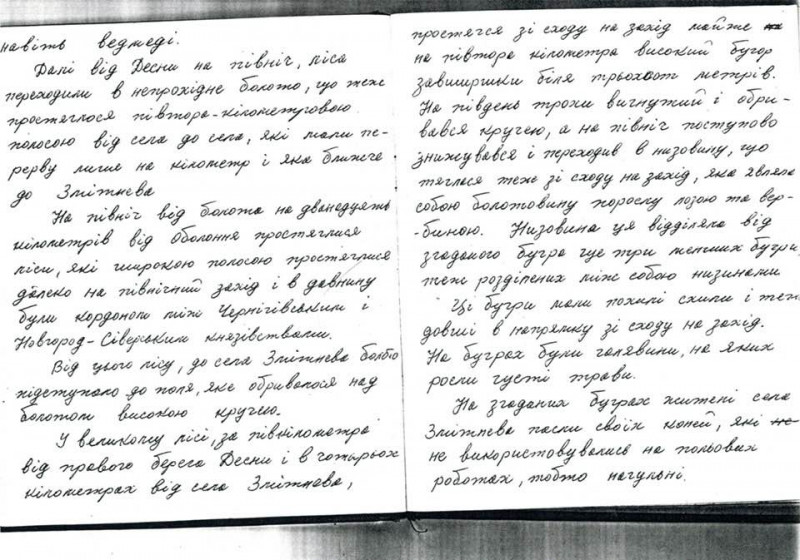 навіть ведмеді.
Далі від Десни на північ, ліса
переходили в непрохідне болото, що теж
простяглося півтора-кілометровою
полосою від села до села, які мали пе-
рерву лише на кілометр і яка ближче
до Зміжнева
На північ від болота на дванадцять
кілометрів від Оболоння простяглися
ліси, які широкою полосою простяглися
далеко на північний захід і в давнину
були кордоном між Чернігівським і
Новгород-Сіверським князівствами.
Від цього лісу, до села Зміжнева болото
підступало до поля, яке обривалося над
болотом високою кручею.
У великому лісі, за півкілометра
від правого берега Десни і в чотирьох
кілометрах від села Зміжнева,
простягся зі сходу на захід майже
на півтора кілометра високий бугор
завширшки біля трьохсот метрів.
На південь трохи вигнутий і обри-
вався кручею, а на північ поступово
знижувався і переходив в низовину, що
тяглася теж зі сходу на захід, яка являла
собою болотовину порослу лозою та вер-
-биною. Низовина ця відділяла від
згаданого бугра ще три менших бугри,
теж розділених між собою низинами
Ці бугри мали похилі схили і теж
довші в напрямку зі сходу на захід.
На буграх були галявини, на яких
росли густі трави.
На згаданих буграх жителі села
Зміжнева пасли своїх коней, які не
не використовувались на польових
роботах, тобто нагульні.